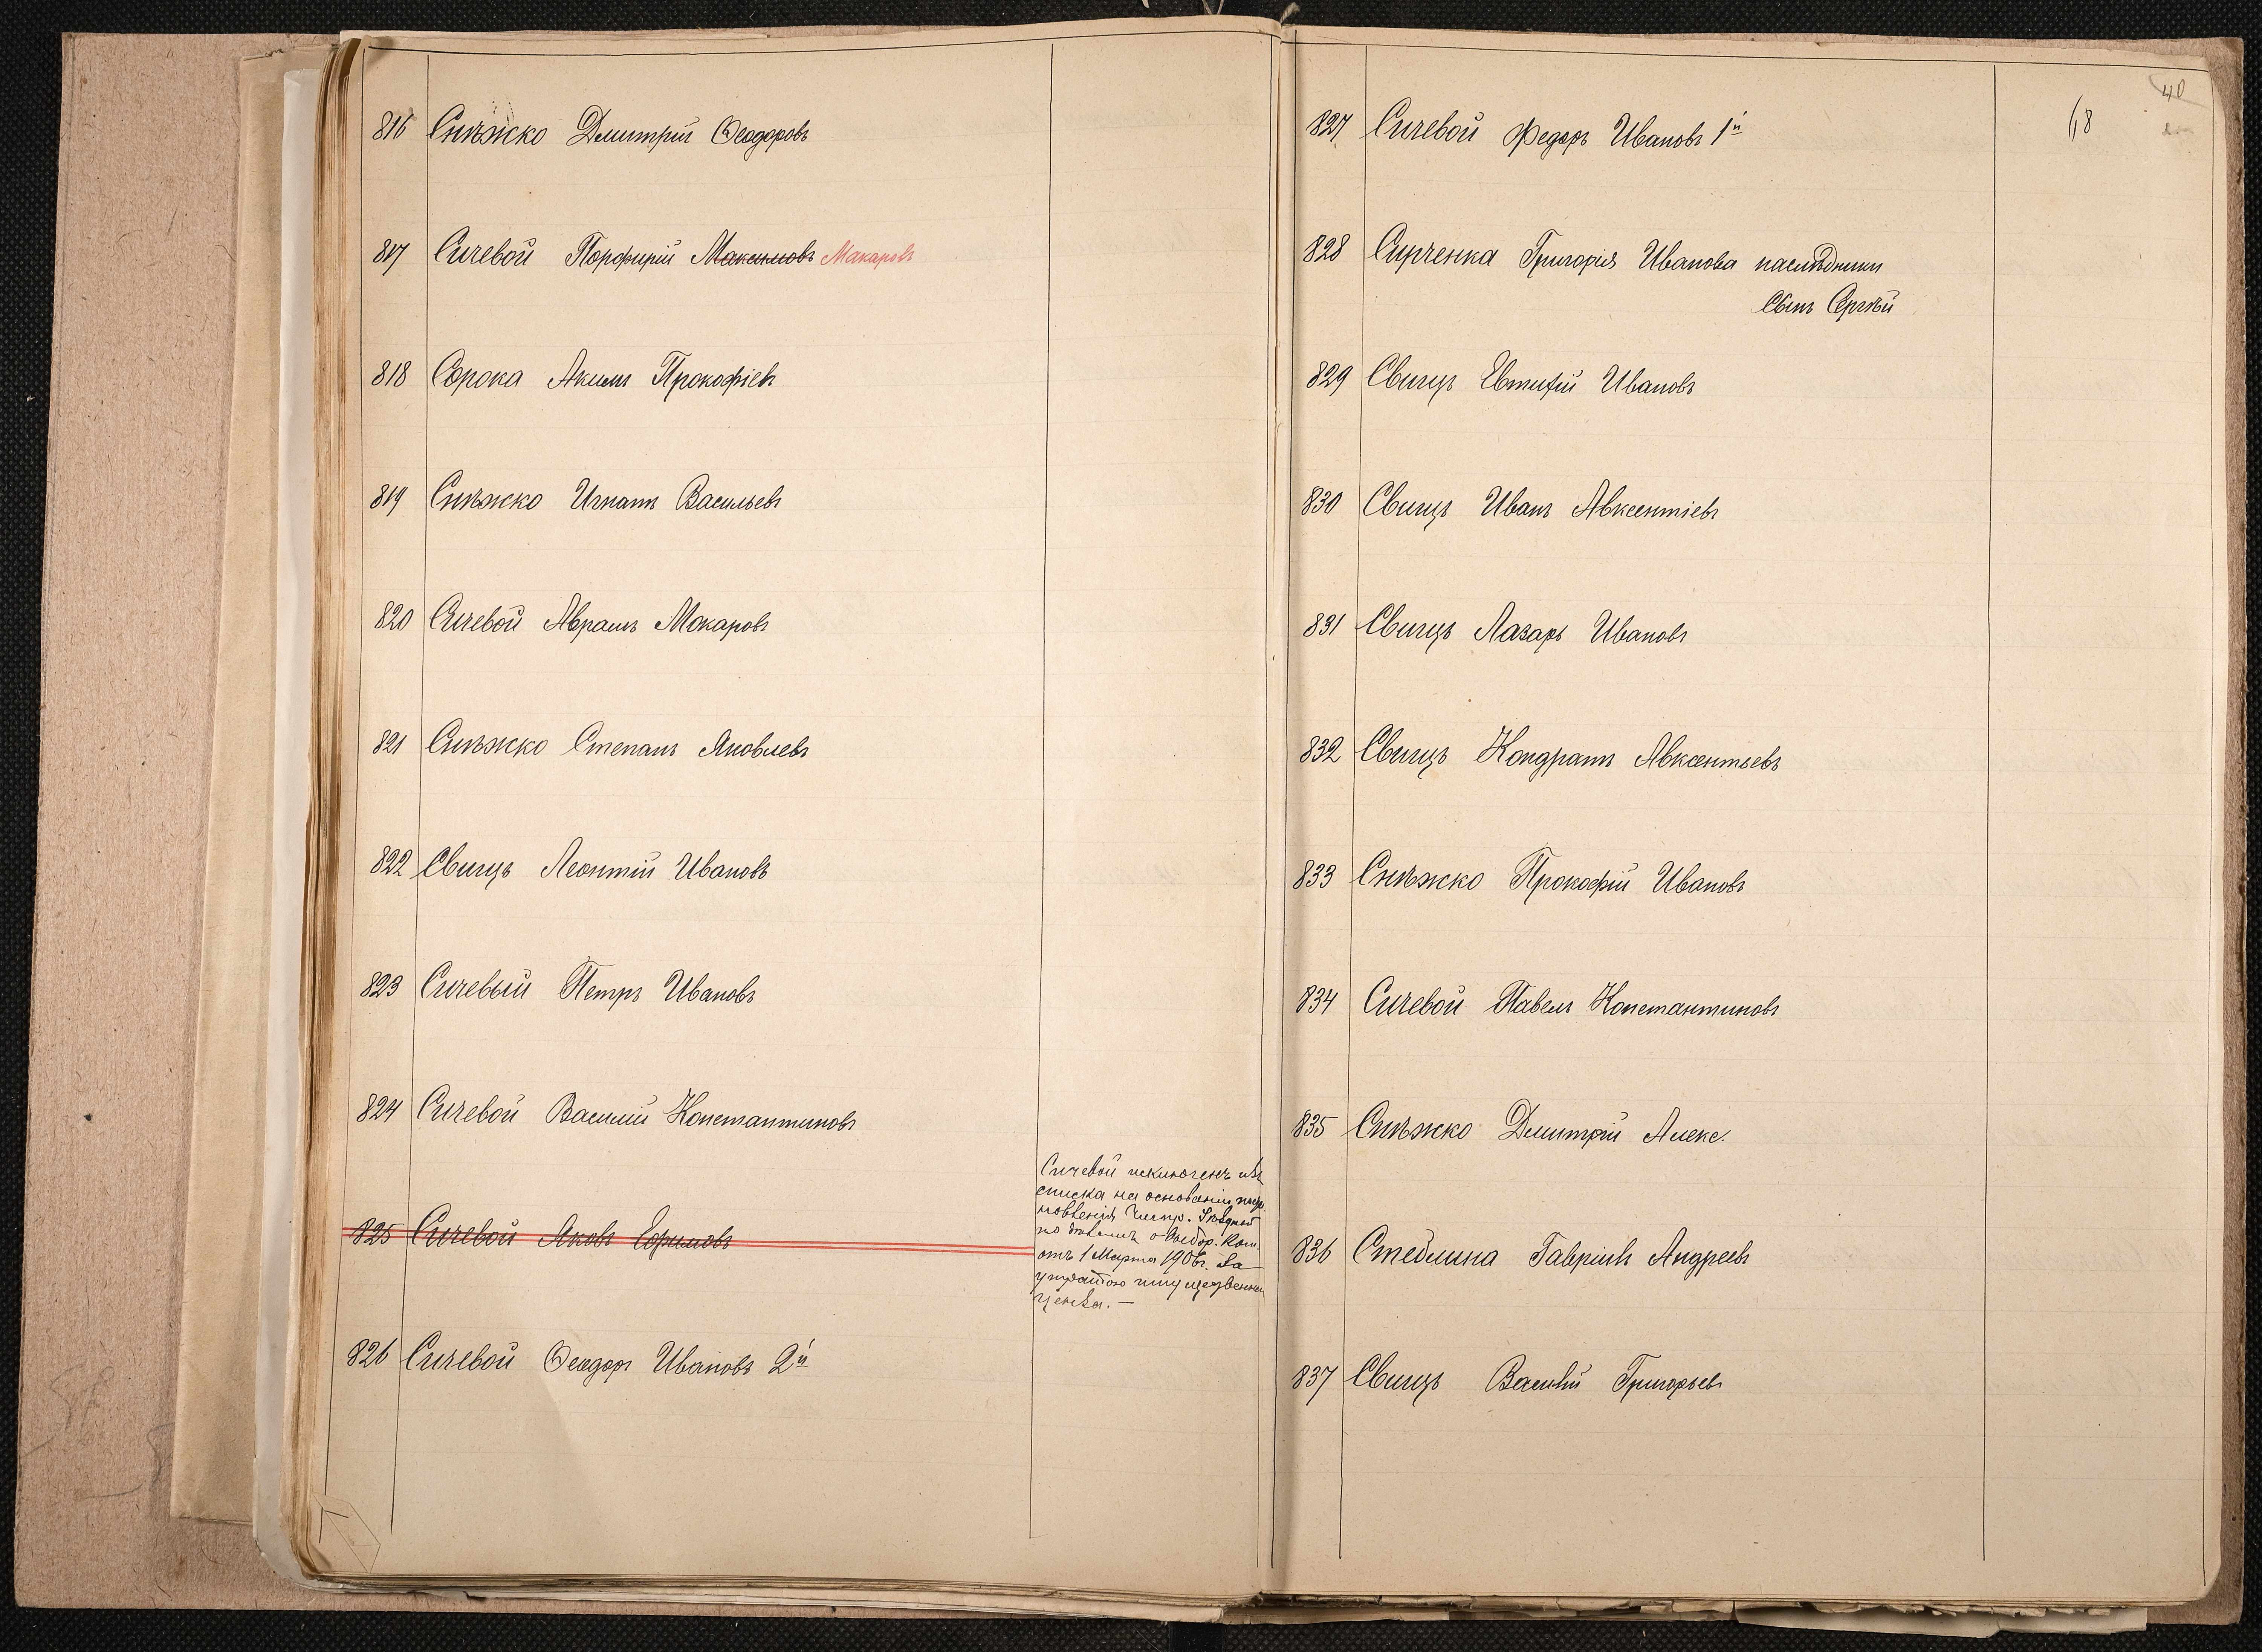 816 Снѣжко Дмитрій Ѳеодоровъ
817 Сичевой Порфирій Максимовъ Макаровъ
818 Сорока Акимъ Прокофіевъ
819 Снѣжко Игнатъ Васильевъ
820 Сичевой Аврамъ Макаровъ
821 Снѣжко Степанъ Яковлевъ
822 Свищъ Леонтій Ивановъ
823 Сичевый Петръ Ивановъ
824 Сичевой Василій Константиновъ
825 Сичевой Яковъ Ефимовъ
Сичевой исключенъ изъ
списка на основаніи пост
новленія Уѣздной
по дѣламъ о выбор. Ком
отъ 1 Марта 1906г. За
утратою имущественна
ценза. —
826 Сичевой Ѳеодоръ Ивановъ 2й
40
68
827 Сичевой Федоръ Ивановъ 1й
828 Сирченка Григорія Иванова наслѣдники
Сынъ Сергѣй
829 Свищъ Евтифій Ивановъ
830 Свищъ Иванъ Авксентіевъ
831 Свищъ Лазарь Ивановъ
832 Свищъ Кондратъ Авксентьевъ
833 Снѣжко Прокофій Ивановъ
834 Сичевой Павелъ Константиновъ
835 Снѣжко Дмитрій Алекс.
836 Стеблина Гавріилъ Андреевъ
837 Свищъ Василій Григорьев